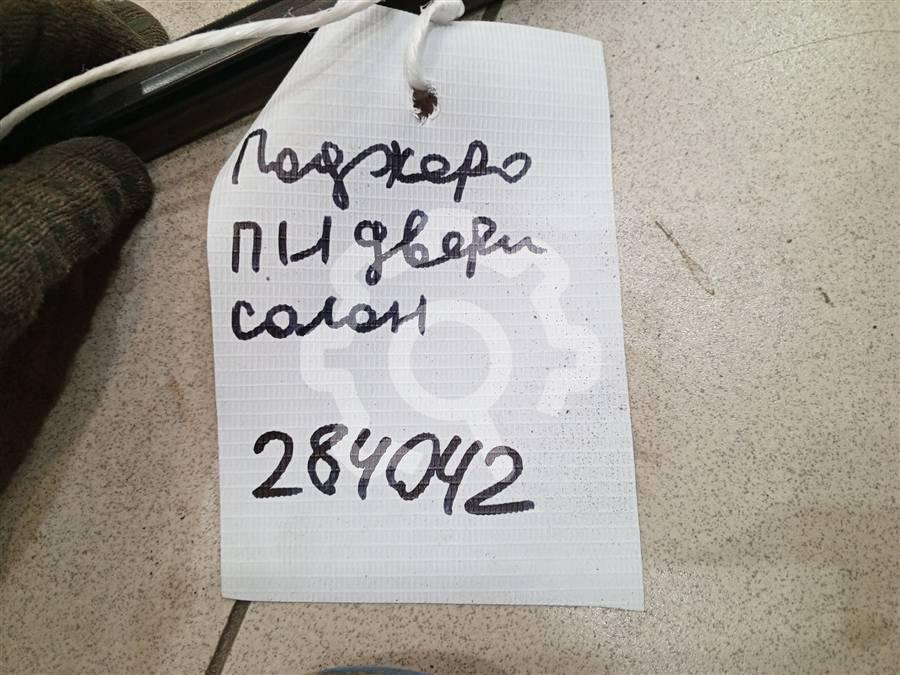 Паджеро
ПН двери
салон
284042